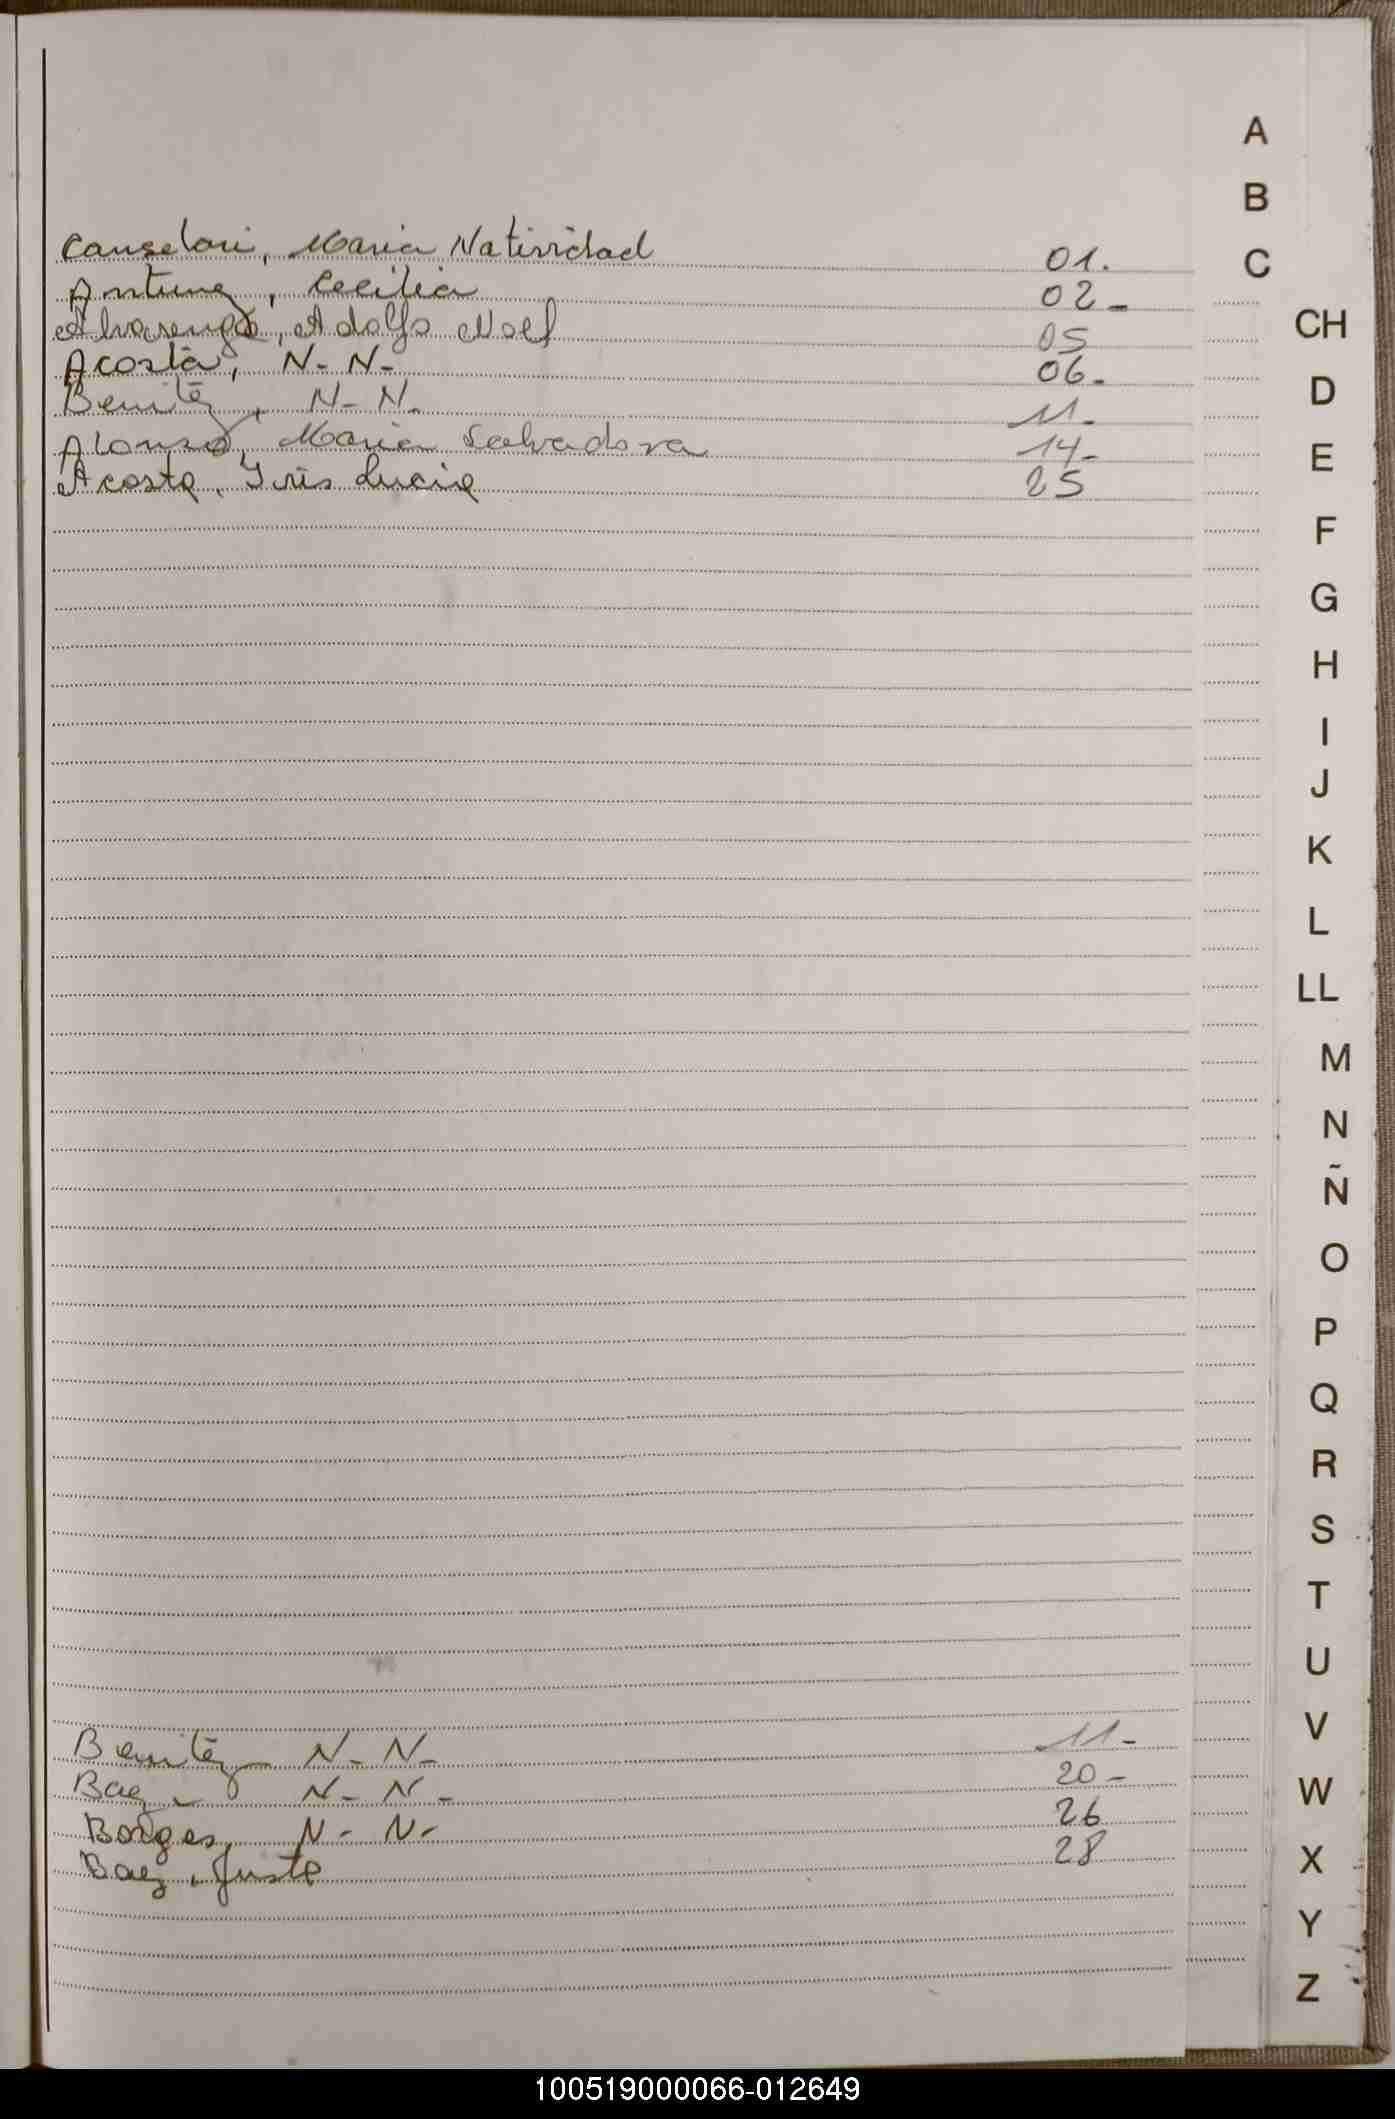 Canselari, Maria Natividad 01.
Antunez, Cecilia 02-
Alvarenga, Adolfo Noel 05
Acosta, N-N- 06-
Benitez, N-N. 11-
Alonso, Maria Salvadora 14-
Acosta, Iris Lucia 25
Benitez N-N- 11-
Baez, N-N- 20-
Borges, N-N- 26
Baez, Justa 28
A
B
C
CH
D
E
F
G
H
I
J
K
L
LL
M
N
Ñ
O
P
Q
R
S
T
U
V
W
X
Y
Z
100519000066-012649